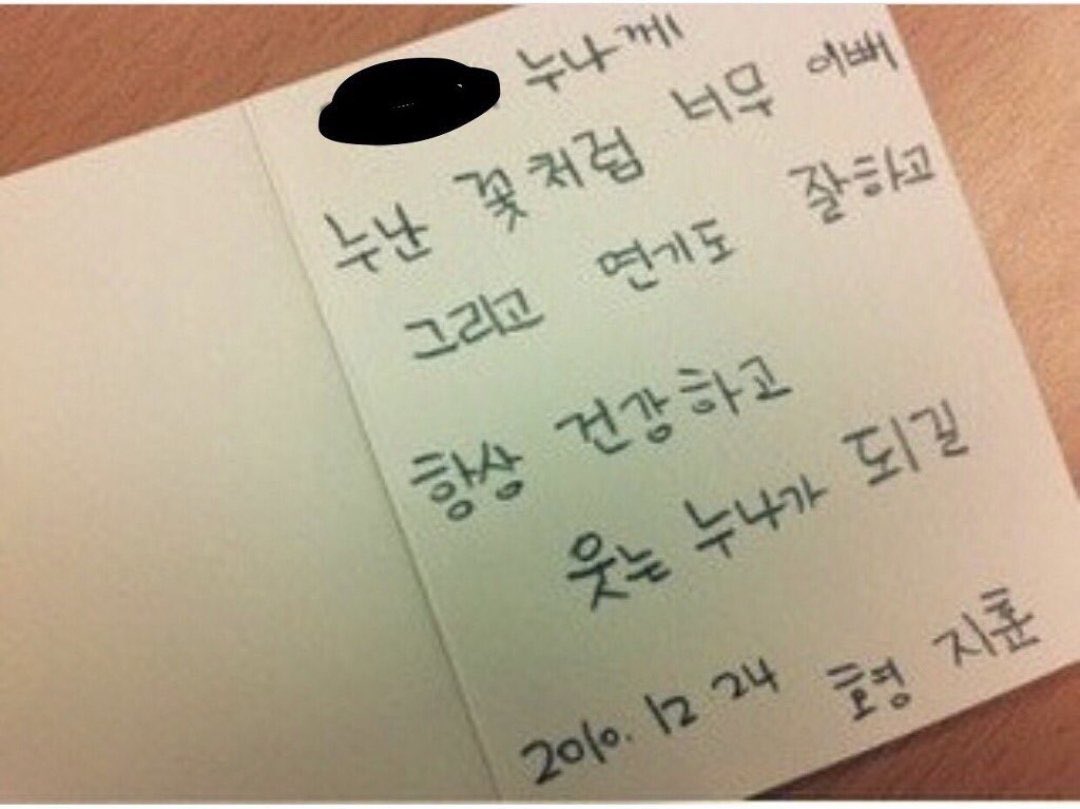 누나께
누난 꽃처럼 너무 이뻐
그리고 연기도 잘하고
항상 건강하고
웃는 누나가 되길
2010. 12 24 효영 지훈